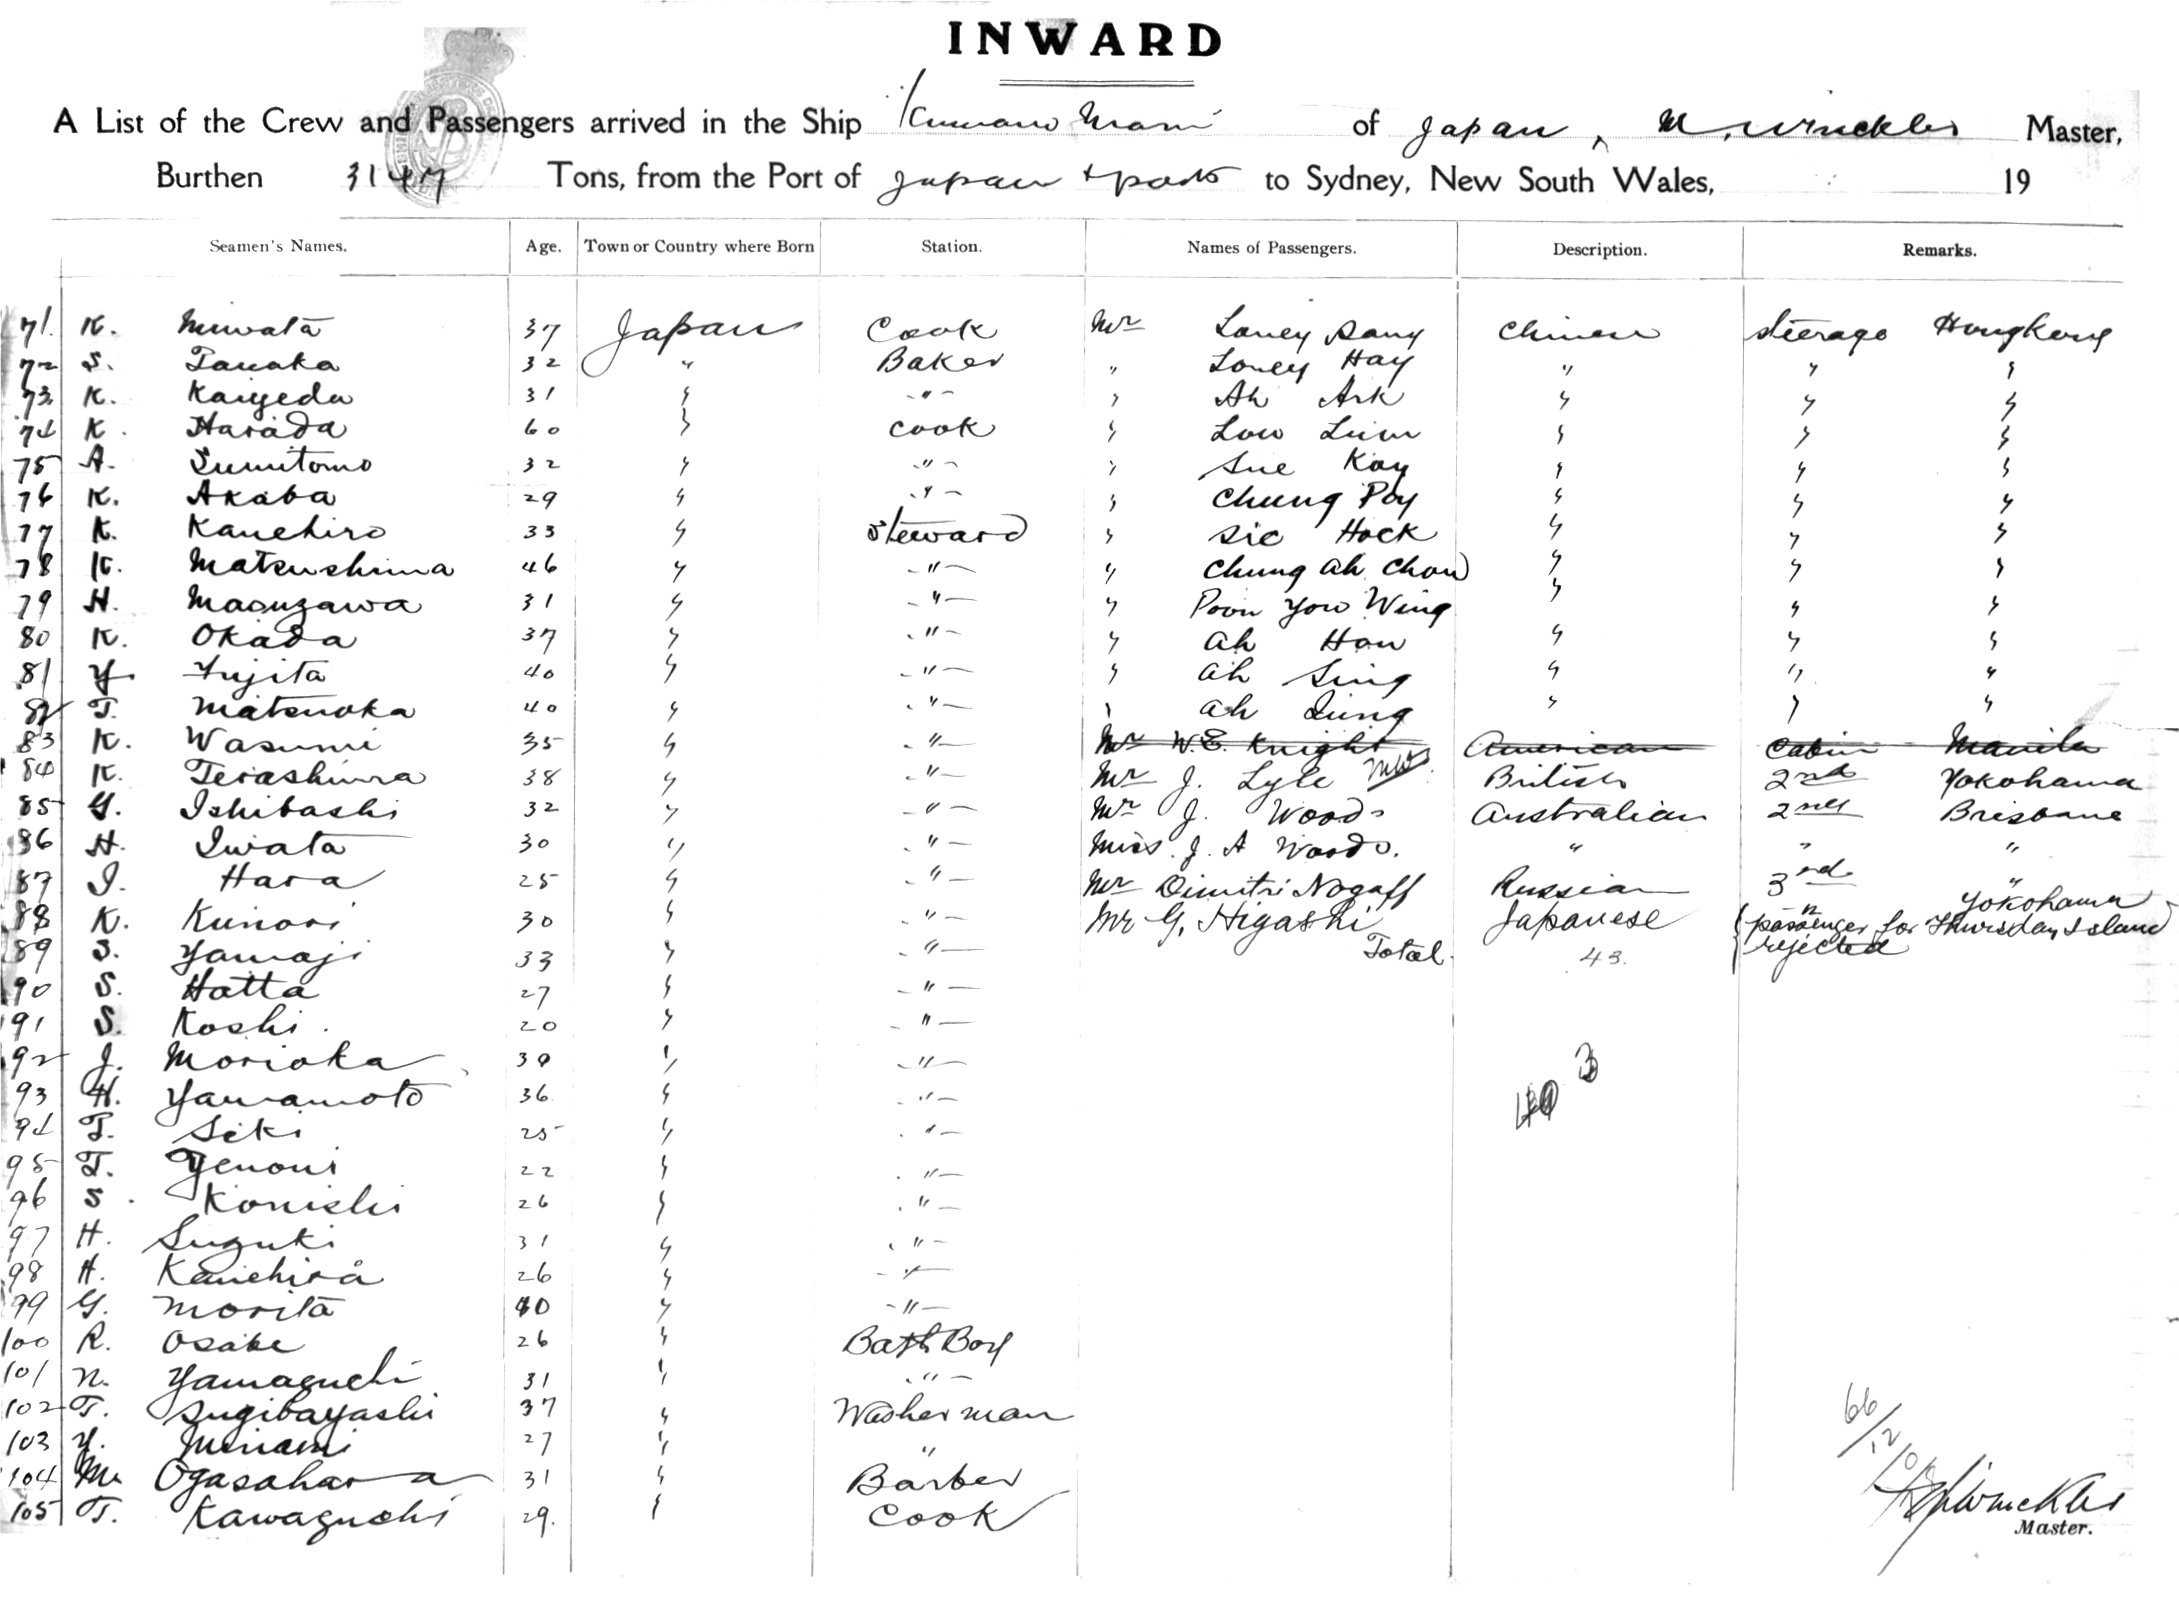 INWARD
A List of the Crew and Passengers arrived in the Ship Kumano Maru of Japan, M. Winckler Master,
Burthen 3147 Tons, from the Port of Japan + ports to Sydney, New South Wales, 19
Seamen's Names. Age. Town or Country where Born Station. Names of Passengers. Description. Remarks.
71. K. Miwata 37 Japan Cook Mr Loney Sang Chinese steerage Hongkong
72 S. Tanaka 32 " Baker " Loney Hay " " "
73 K. Kaigeda 31 " " " Ah Ark " " "
74 K. Harada 60 " cook " Low Lum " " "
75 A. Sumitomo 32 " " " Sue Kay " " "
76 K. Akaba 29 " " " Chung Poy " " "
77 K. Kanehiro 33 " Steward " Sic Hock " " "
78 K. Matsushima 46 " " " Chung Ah Chow " " "
79 H. Masuzawa 31 " " " Poon You Wing " " "
80 K. Okada 37 " " " Ah Hon " " "
81 Y. Fujita 40 " " " Ah Sing " " "
82 T. Matsuoka 40 " " " Ah " " "
83 K. Wasumi 35 " " Mr W. E. Knight American Cabin Manila
84 K. Terashima 38 " " Mr J. Lyle British 2nd Yokohama
85 G. Ishibashi 32 " " Mr J. Woods Australian 2nd Brisbane
86 H. Iwata 30 " " Miss J. A Woods. " " "
87 I. Hara 25 " " Mr Dimitri Nogaff Russian 3rd "
88 K. Kunori 30 " " Mr G. Higashi Japanese " Yokohama
passenger for Thursday Island
89 S. Yamaji 33 " " Total 43. rejected
90 S. Hatta 27 " "
91 S. Koshi. 20 " "
92 J. Morioka 39 " "
93 H. Yamamoto 36 " "
94 T. Seki 25 " "
95 T. Yenoui 22 " "
96 S. Konishi 26 " "
97 H. Suzuki 31 " "
98 H. Kanehira 26 " "
99 G. Morita 40 " "
100 R. Osabe 26 " Bath Boy
101 N. Yamaguchi 31 " "
102 T. Sugibayashi 37 " Washerman
103 Y. Minami 27 " "
104 M. Ogasahara 31 " Barber
105 T. Kawaguchi 29. " Cook
66/12/08
M Winckler
Master.